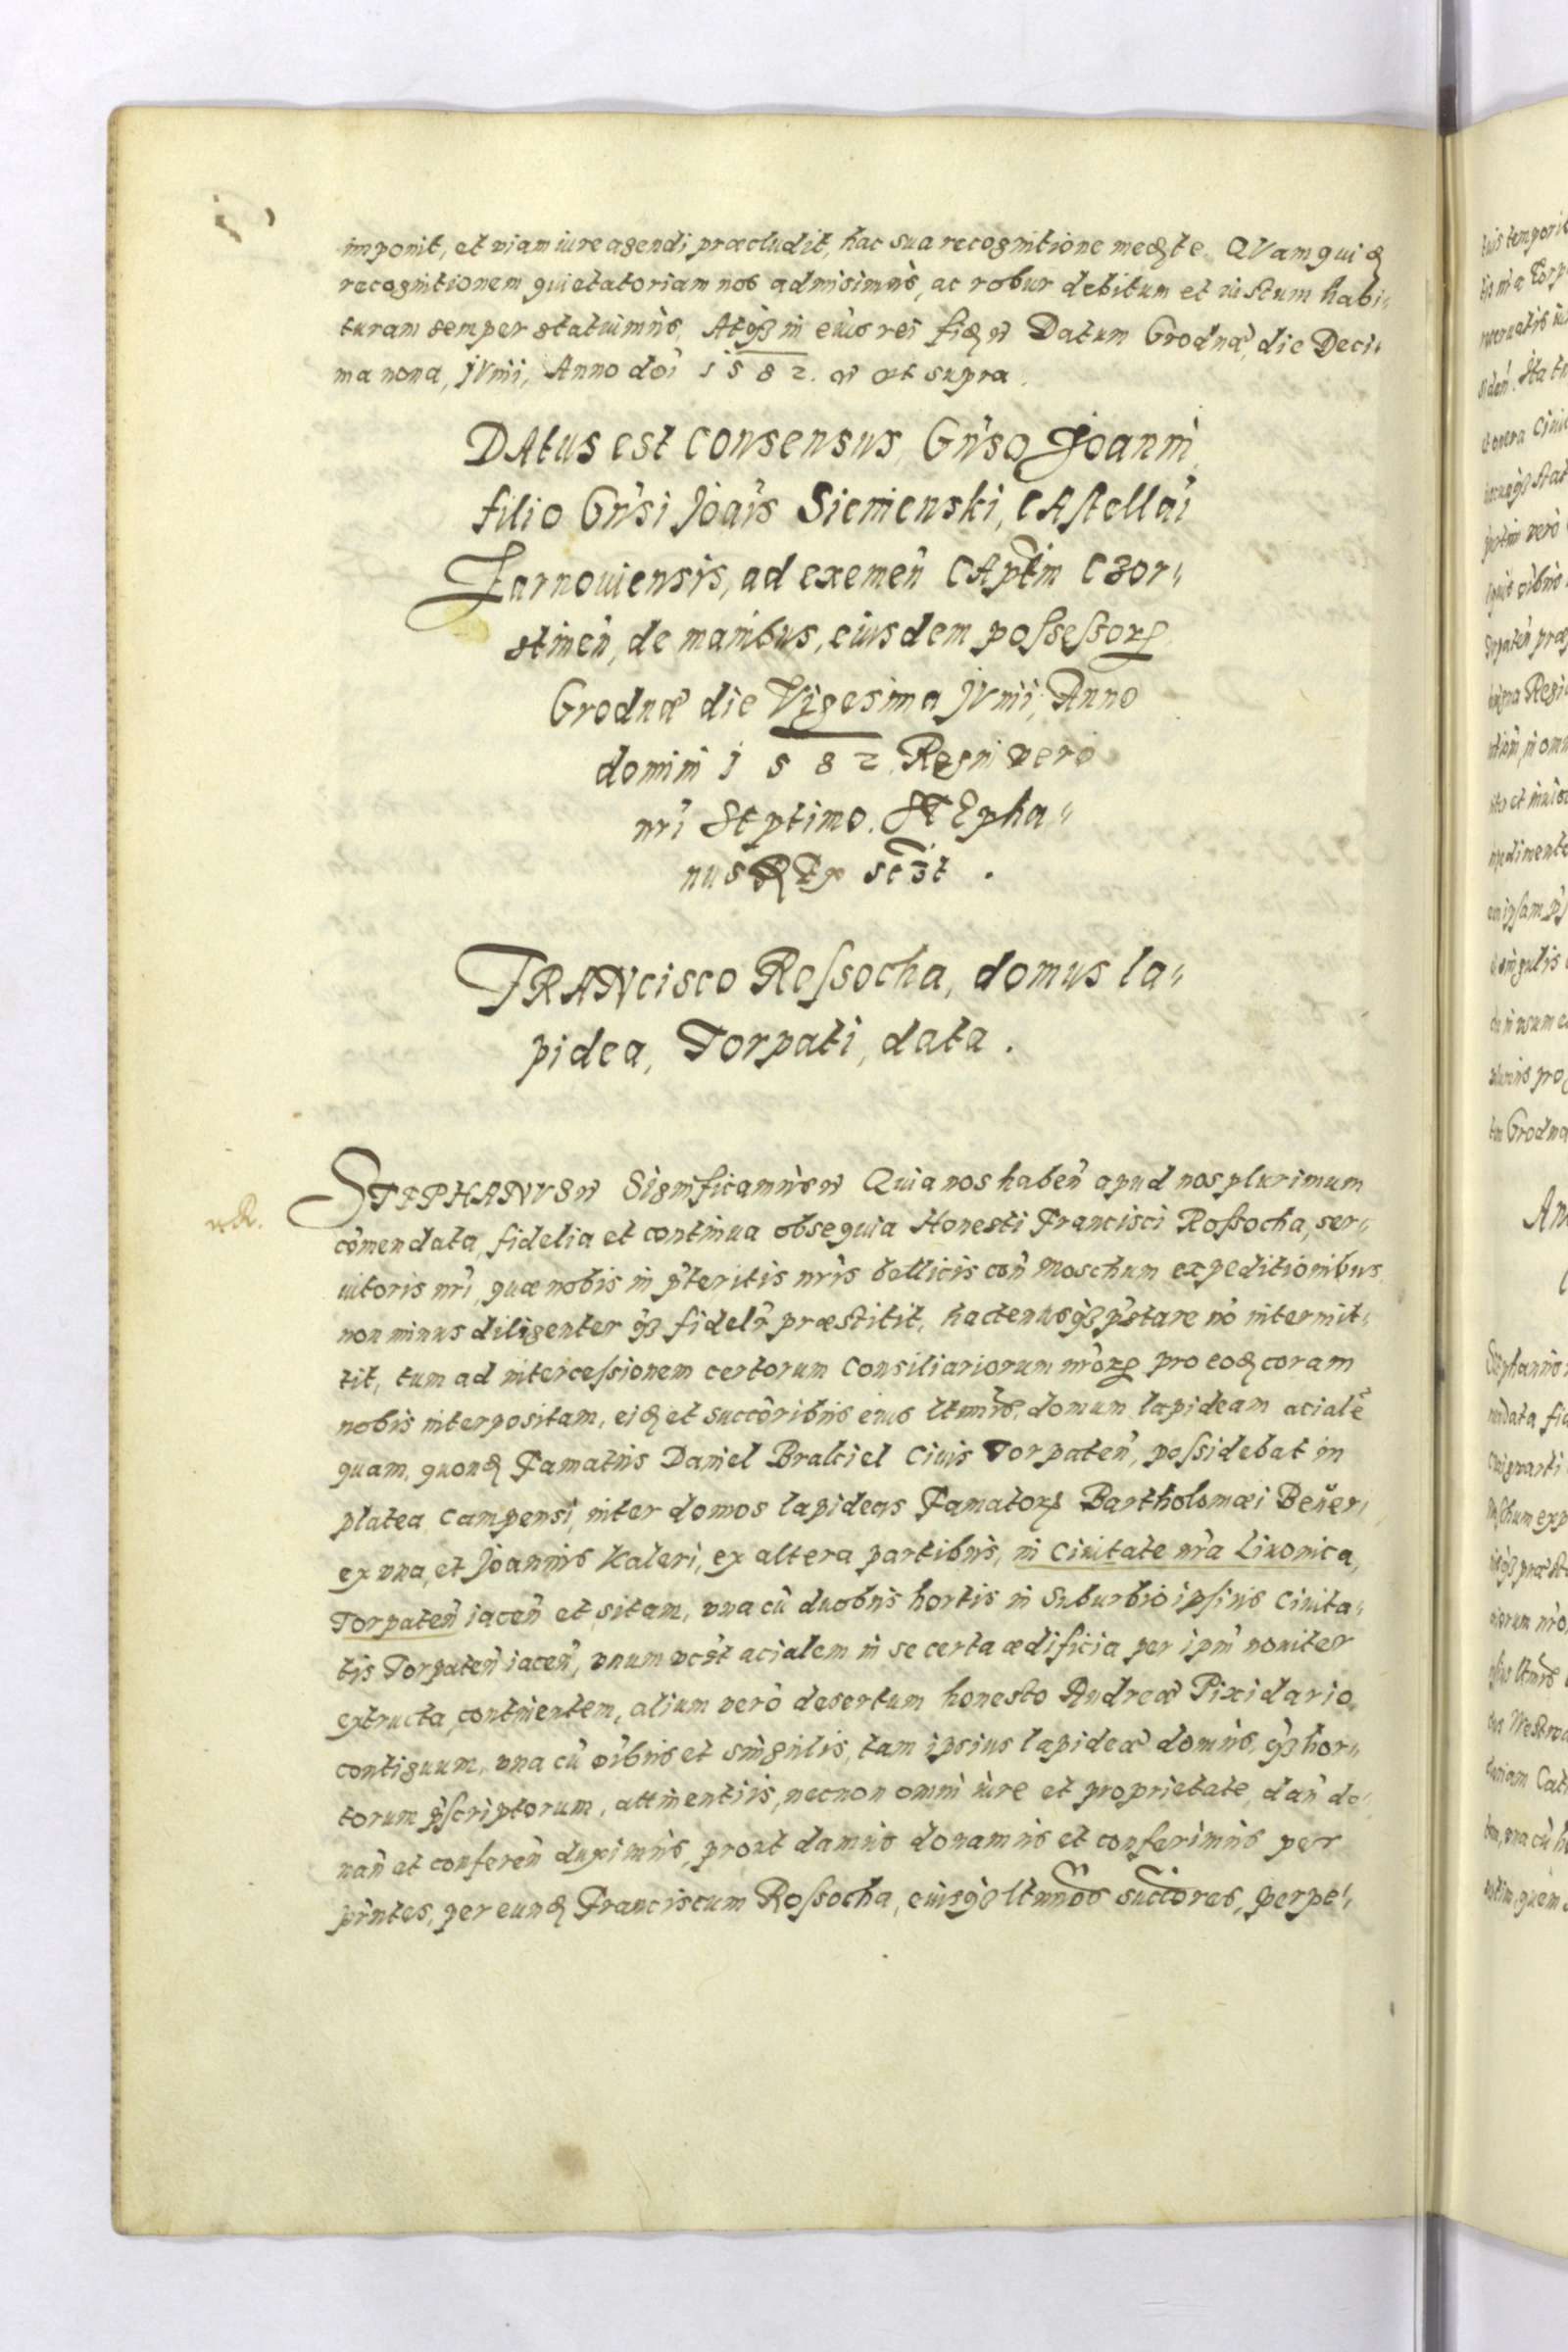 imponit, et viam iure agendi præcludit, hac sua recognitione med[ian]te. QVam quid[em]
recognitionem quietatoriam nos admisimus, ac robur debitum et iustum habi„
turam semper statuimus. Atq[ue] in eius rei fid[em] etc Datum Grodnæ, die Deci„
ma nona, jVnii, Anno doi 1582. etc vt supra.
DAtus est Consensus Gn̄so Joanni
filio Gn̄si Joāis Siemienski, CAstellāi
Zarnouiensis, ad exemen̄ CAptm̄ Czor„
stinen̄, de manibus, eiusdem possessor[um]
Grodnæ die Vigesima jVnii, Anno
domini 1582 Regni vero
nr̄i Septimo. STEpha„
nus REx sc3t.
FRANcisco Rossocha, domus la„
pidea, Torpati, data.
STEPHANVS etc Significamus etc Quia nos haben̄ apud nos plurimum
cōmendata, fidelia et continua obsequia Honesti Francisci Rossocha, ser„
uitoris nr̄i, quæ nobis in p̄teritis nr̄is bellicis con̄ Moschum expeditionibus
non minus diligenter q[uam] fidelr̄ præstitit, hactenusq[ue] p̄stare nō intermit„
tit, tum ad intercessionem certorum Consiliariorum nr̄or[um] pro eod[em] coram
nobis interpositam, eid[em] et succōribus eius ltimis, domum lapideam acialē
quam, quond[am] Famatus Daniel Bralciel Ciuis Torpaten̄, possidebat in
platea Campensi, inter domos lapideas Famator[um] Bartholomæi Bener„
ex vna, et Joannis Kaleri, ex altera partibus, in Ciuitate nr̄a Liuonica,
Torpaten̄ iacen̄ et sitam, vna cū duobus hortis in Suburbio ipsius Ciuita„
tis Torpaten̄ iacen̄, vnum vc3t acialem in se certa ædificia per ipm̄ nouiter
extructa, continentem, alium verò desertum honesto Andreæ Pixidario
contiguum, vna cū oībus et singulis, tam ipsius lapideæ domus, q[uam] hor„
torum p̄scriptorum, attinentiis, necnon omni iure et proprietate, dan̄ do„
nan̄ et conferen̄ duximus, prout damus donamus et conferimus per
pr̄ntes, per eund[em] Franciscum Rossocha, eiusq[ue] ltimos succōres, perpe„